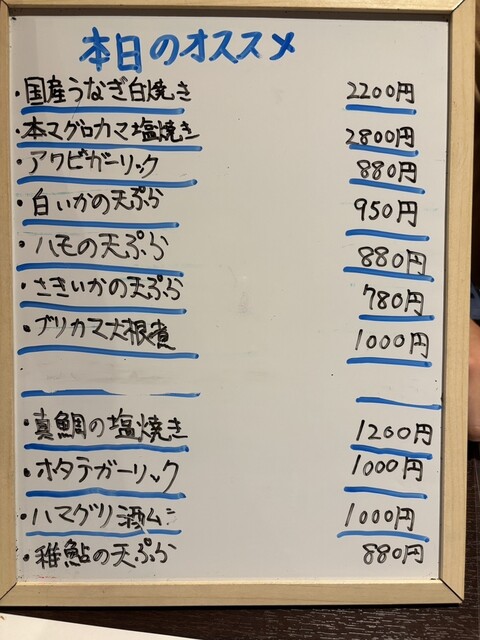 本日のオススメ
・国産うなぎ白焼き 2200円
・本マグロカマ塩焼き 2800円
・アワビガーリック 880円
・白いかの天ぷら 950円
・ハモの天ぷら 880円
・さきいかの天ぷら 780円
・ブリカマ大根煮 1000円
・真鯛の塩焼き 1200円
・オタテガーリック 1000円
・ハマグリ酒ムシ 1000円
・稚鮎の天ぷら 880円